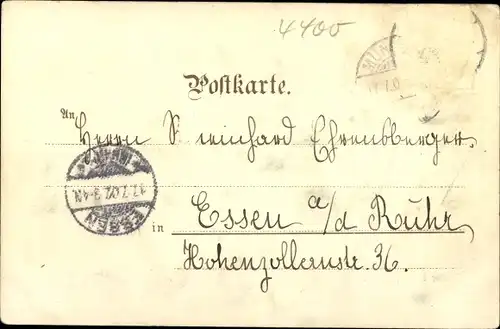 4400
Postkarte.
An Herrn Reinhard Ehrensberger.
ESSEN
17.7.02.3-4N.
in Essen a/d Ruhr
Hohenzollernstr. 36.